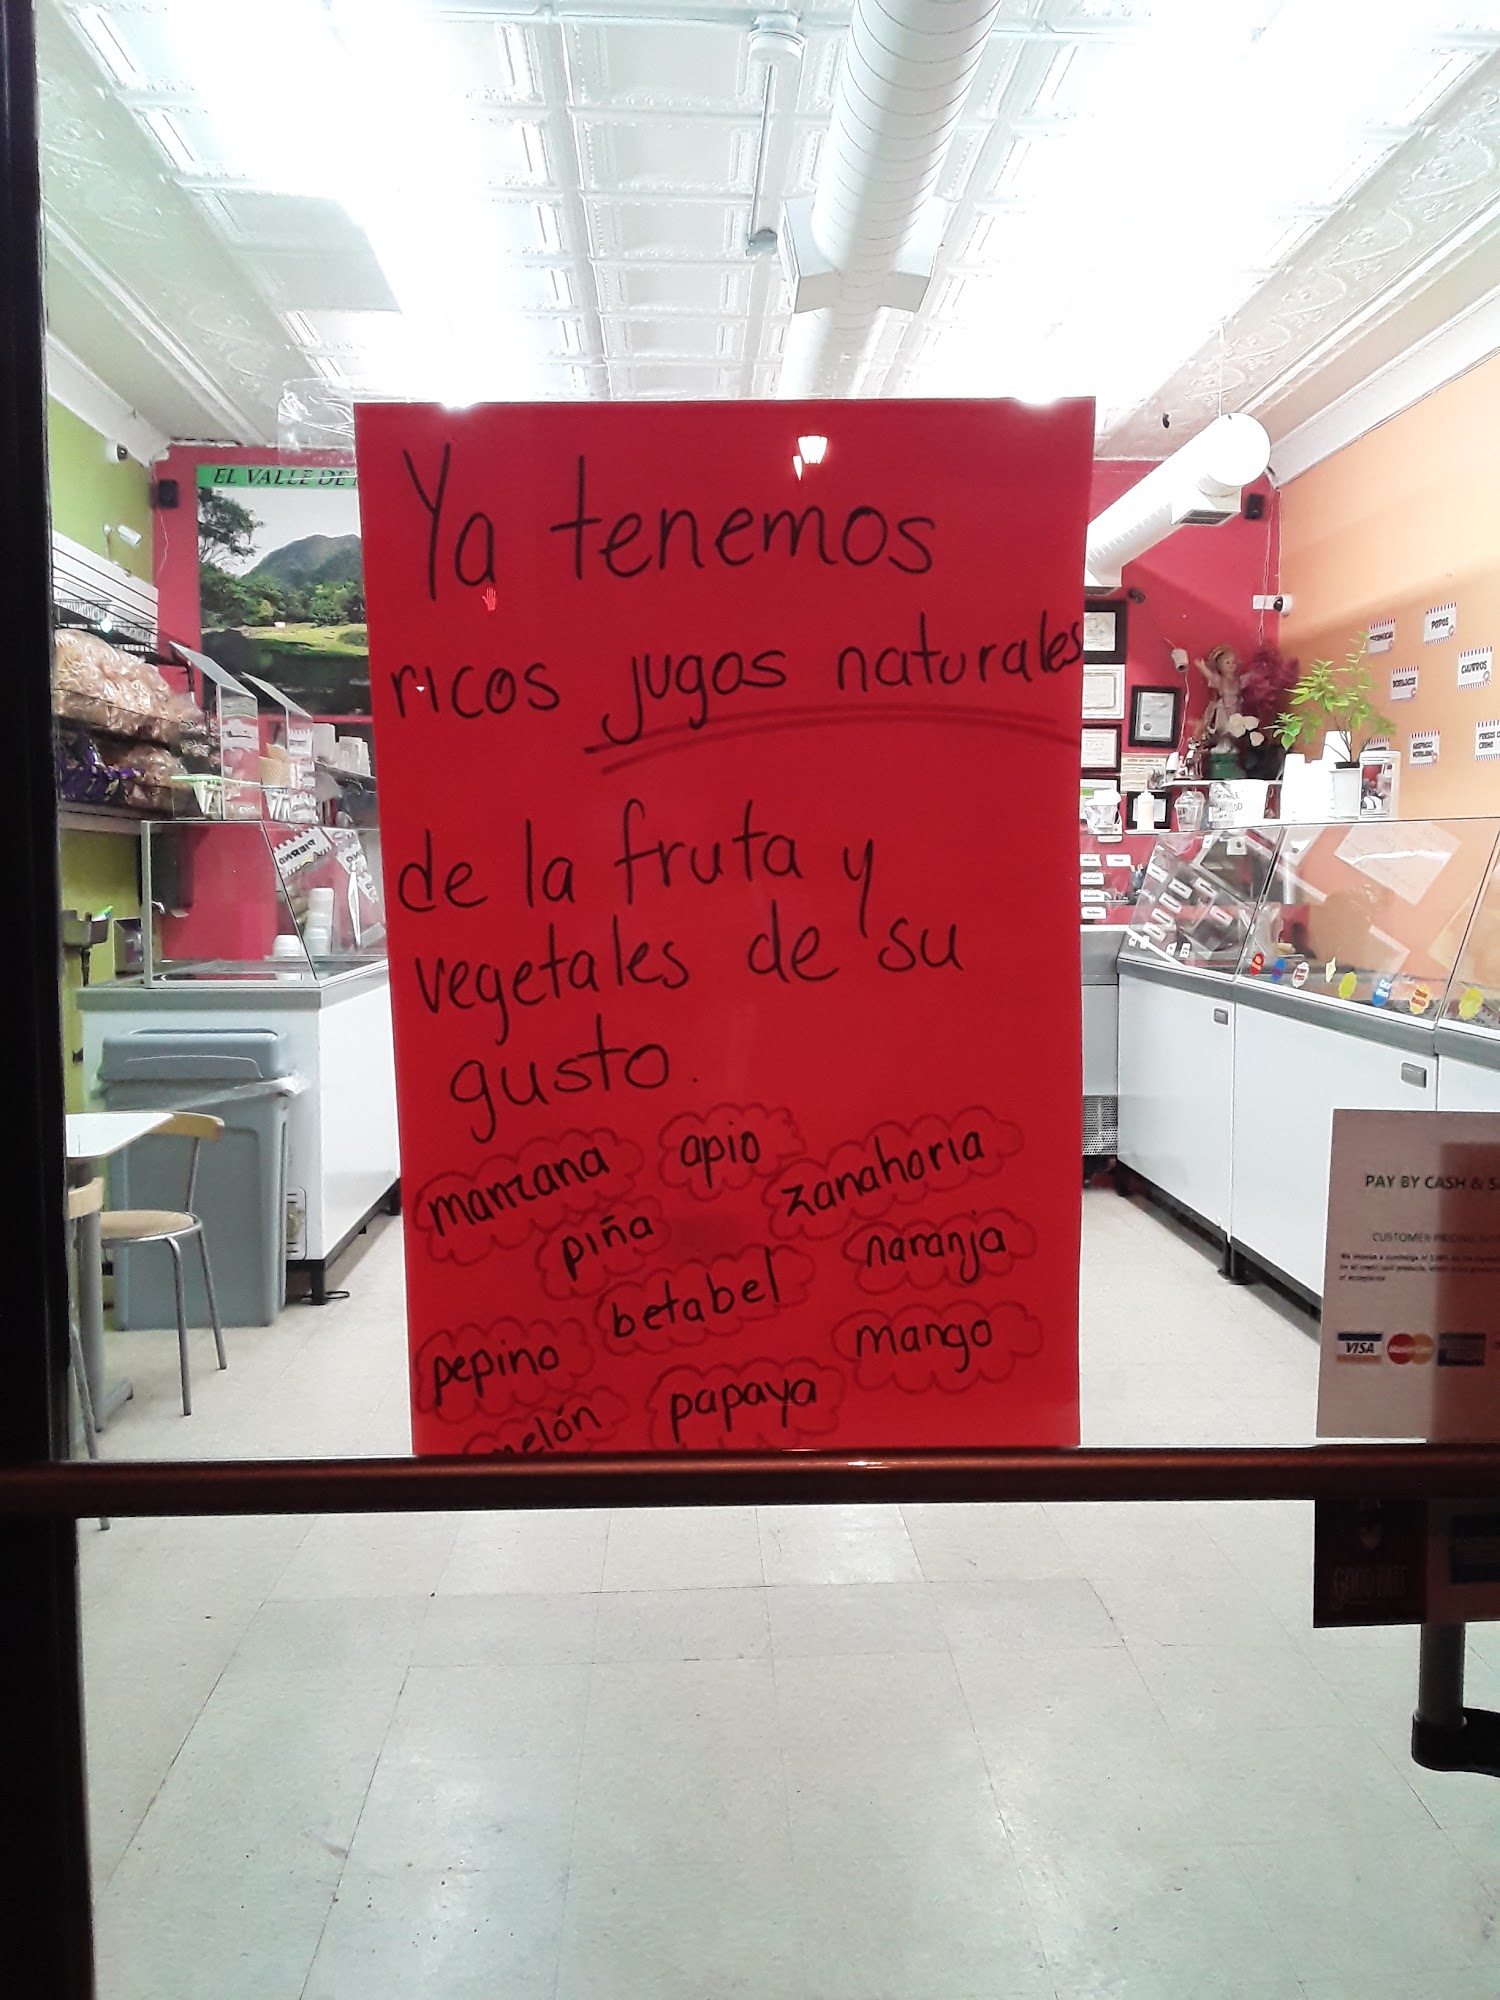 EL VALLE DE
Ya tenemos
ricos jugos naturales
de la fruta y
vegetales de su
gusto.
manzana apio zanahoria
piña naranja
betabel
pepino mango
melón papaya
PAPAS
CHURROS
PAY BY CASH &
CUSTOMER PRICING
VISA